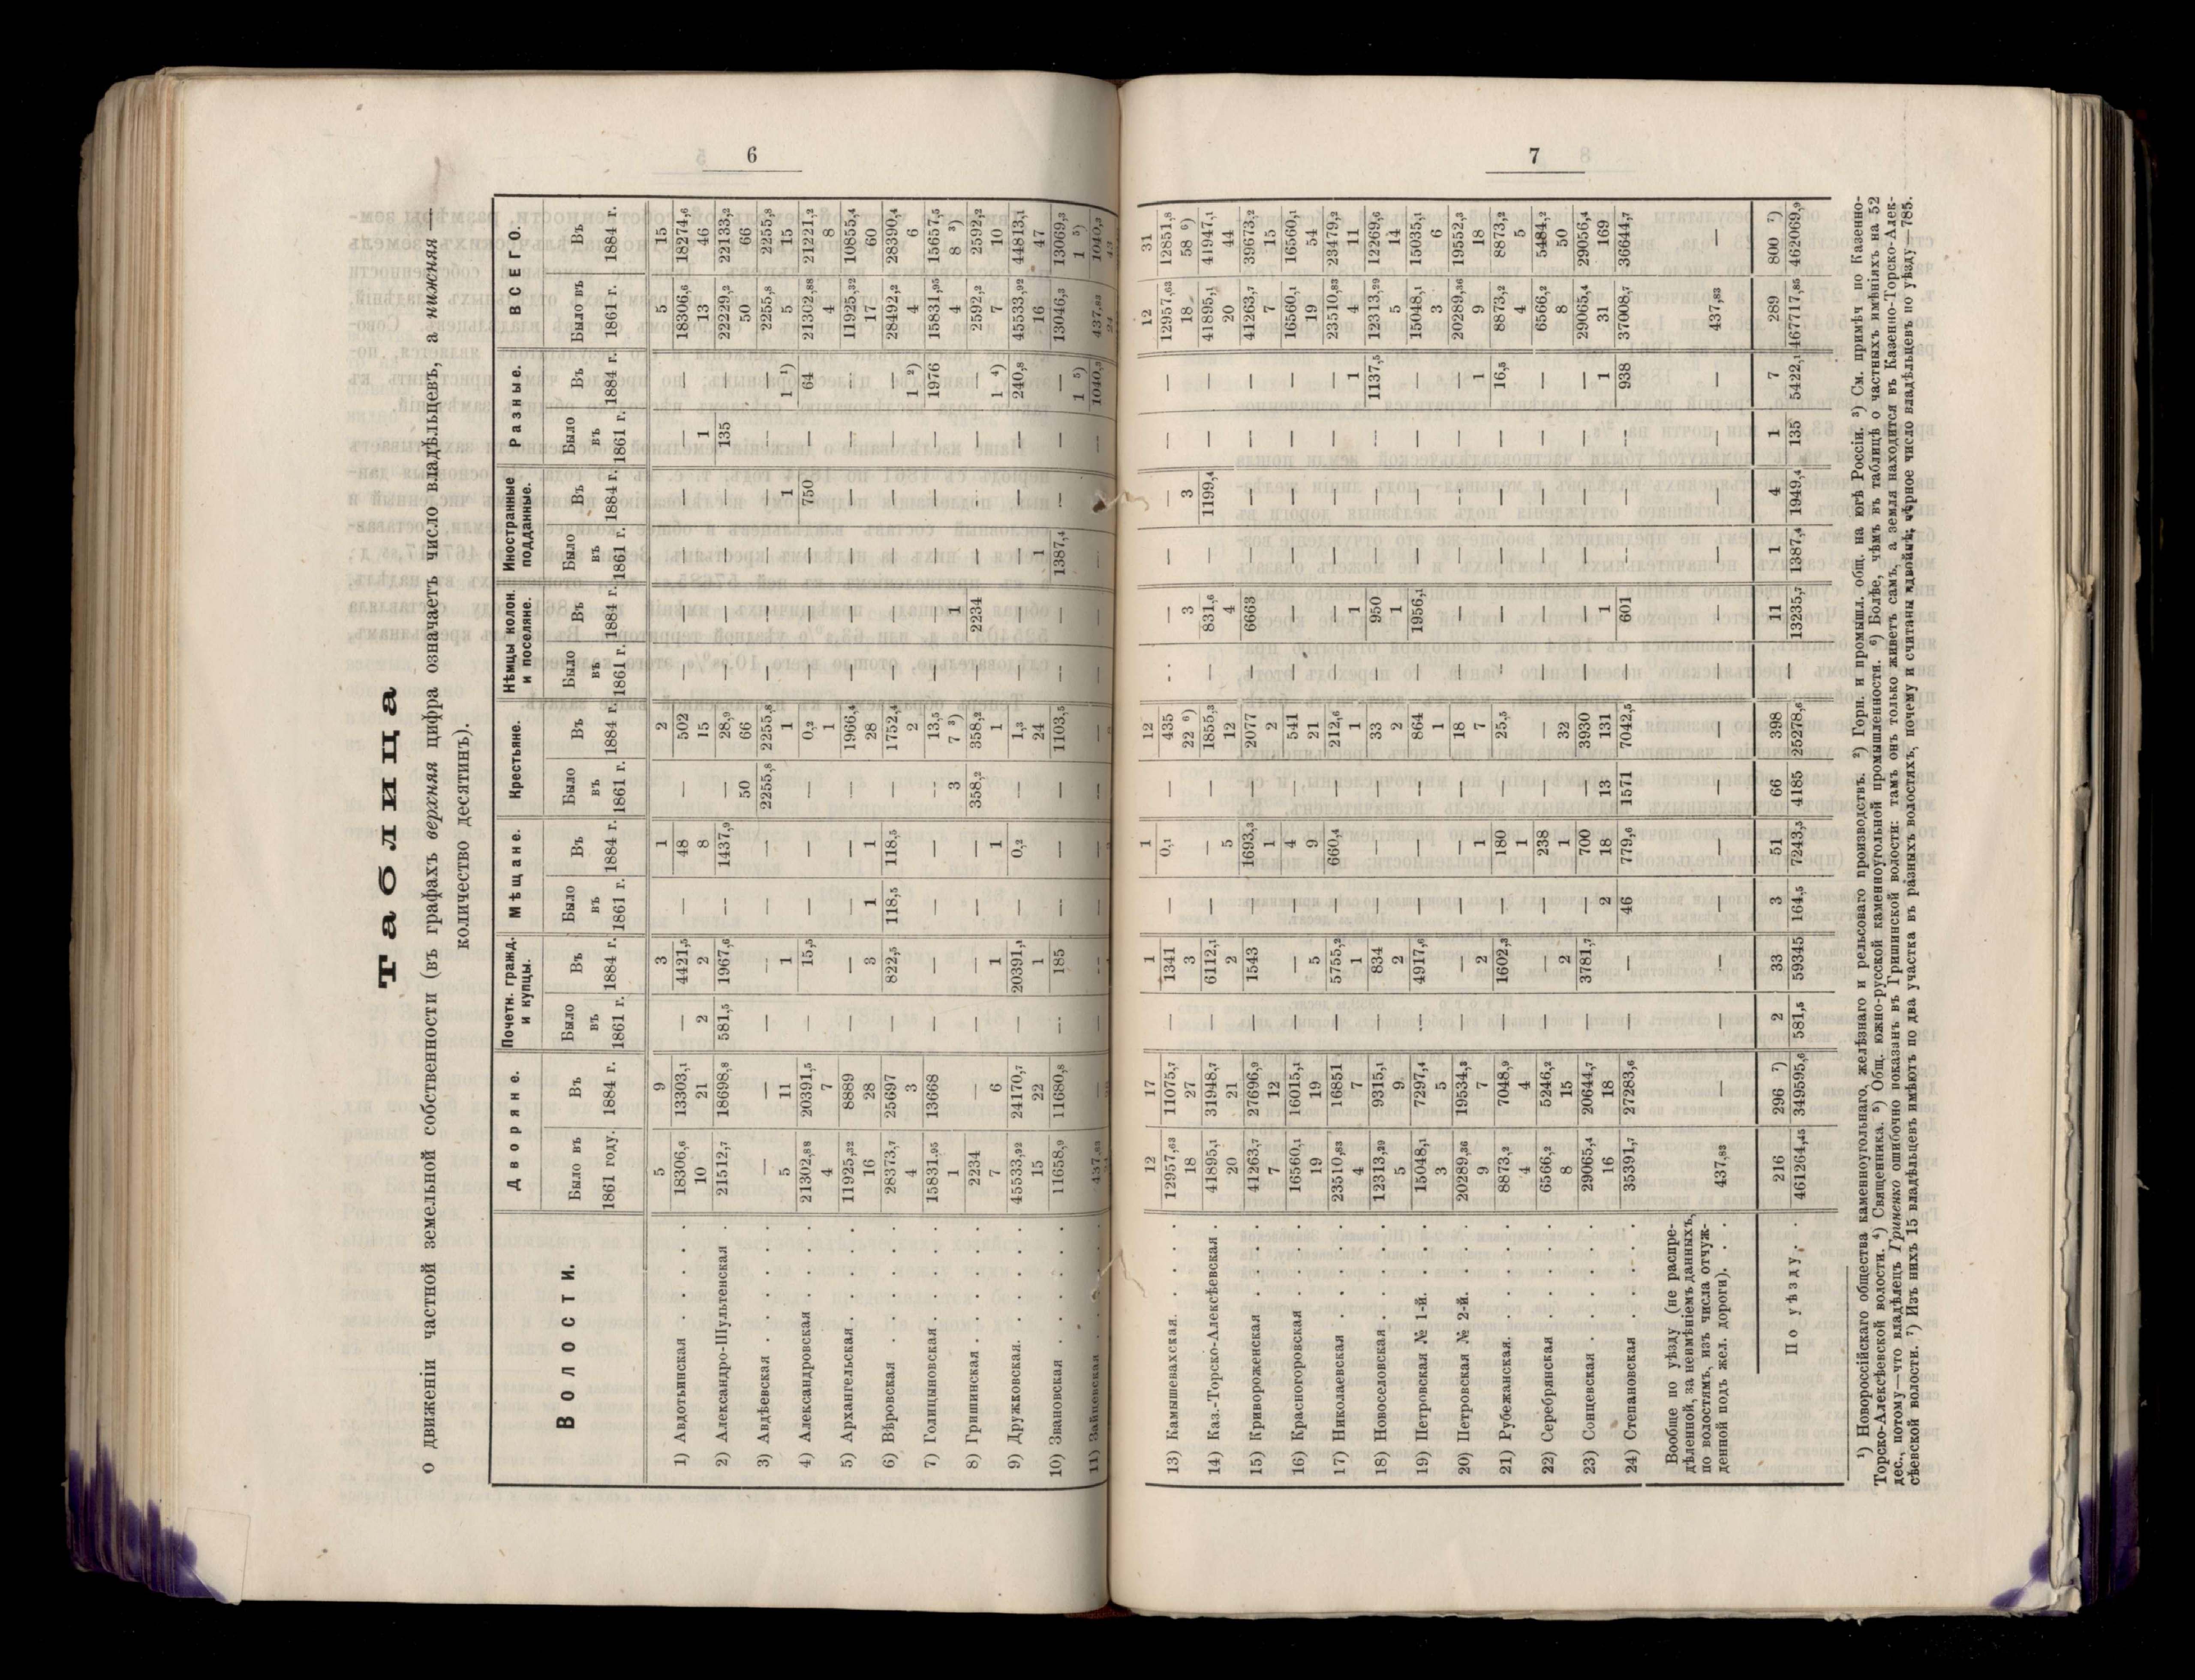 6
Таблица
о движеніи частной земельной собственности (въ графахъ верхняя цифра означаетъ число владѣльцевъ, а нижняя —
количество десятинъ).
ВОЛОСТИ. Дворяне. Почетн. гражд. и купцы. Мѣщане. Крестьяне. Нѣмцы колон. и поселяне. Иностраные подданные. Разные. ВСЕГО.
Было въ 1861 году. Въ 1884 г. Было въ 1861 г. Въ 1884 г. Было въ 1861 г. Въ 1884 г. Было въ 1861 г. Въ 1884 г. Было въ 1861 г. Въ 1884 г. Было въ 1861 г. Въ 1884 г. Было въ 1861 г. Въ 1884 г. Было въ 1861 г. Въ 1884 г.
5 9 — 3 — 1 — 2 — — — — — — 5 15
1) Авдотьинская . . . . 18306,6 13303,1 4421,5 48 502 18306,6 18274,6
10 21 2 2 — 8 — 15 — — — — 1 — 13 46
2) Александро-Шультенская 21512,7 18698,8 581,5 1967,6 1437,9 28,9 135 22229,2 22133,2
— — — — — — 50 66 — — — — — — 50 66
3) Авдѣевская . . . . 2255,8 2255,8 2255,8 2255,8
5 11 — 1 — — — 1 — — — 1 — 1 ¹) 5 15
4) Александровская . . . . 21302,88 20391,5 15,5 0,2 750 64 21302,88 21221,2
4 7 — — — — — 1 — — — — — — 4 8
5) Архангельская . . . . 11925,32 8889 1966,4 11925,32 10855,4
16 28 — 3 1 1 — 28 — — — — — — 17 60
6) Вѣровская . . . . 28373,7 25697 822,5 118,5 118,5 1752,4 28492,2 28390,4
4 3 — — — — — 2 — — — — — 1 ²) 4 6
7) Голицыновская . . . . 15831,95 13668 13,5 1976 15831,95 15657,5
1 — — — — — 3 7 ³) — 1 — — — — 4 8 ³)
8) Гришинская . . . . 2234 358,2 358,2 2234 2592,2 2592,2
7 6 — 1 — 1 — 1 — — — — — 1 ⁴) 7 10
9) Дружковская. . . . . 45533,92 24170,7 20391,1 0,2 1,3 240,8 45533,92 44813,1
15 22 — 1 — — — 24 — — 1 — — — 16 47
10) Звановская . . . . 11658,9 11680,8 185 1103,5 1387,4 13046,3 13069,3
— — — — — — — — — — — 1 ⁵) 1 ⁵)
11) Зайцевская . . . . 437,83 1040,3 437,83 1040,3
7
12 17 — 1 — 1 — 12 — — — — — — 12 31
13) Камышевахская. . . . 12957,63 11075,7 1341 0,1 435 12957,63 12851,8
18 27 — 3 — — — 22 ⁶) — 3 — 3 — — 18 58 ⁶)
14) Каз.-Торско-Алексѣевская . 41895,1 31948,7 6112,1 1855,3 831,6 1199,4 41895,1 41947,1
20 21 — 2 — 5 — 12 — 4 — — — — 20 44
15) Криворожeнская . . . . 41263,7 27696,9 1543 1693,3 2077 6663 41263,7 39673,2
7 12 — — — 1 — 2 — — — — — — 7 15
16) Красногоровская . . . . 16560,1 16015,1 4 541 16560,1 16560,1
19 19 — 5 — 9 — 21 — — — — — — 19 54
17) Николаевская . . . . 23510,83 16851 5755,2 660,4 212,6 23510,83 23479,2
4 7 — 1 — — — 1 — 1 — — — 1 4 11
18) Новоселовская . . . . 12313,29 9315,1 834 33 950 1137,5 12313,29 12269,6
5 9 — 2 — — — 2 — 1 — — — — 5 14
19) Петровская № 1-й. . . . 15048,1 7297,4 4917,6 864 1956,1 15048,1 15035,1
3 5 — — — — — 1 — — — — — — 3 6
20) Петровская № 2-й. . . . 20289,36 19534,3 18 20289,36 19552,3
9 7 — 2 — 1 — 7 — — — — — 1 9 18
21) Рубежанская. . . . . 8873,2 7048,9 1602,3 180 25,5 16,5 8873,2 8873,2
4 4 — — — 1 — — — — — — — — 4 5
22) Серебрянская . . . . 6566,2 5246,2 238 6566,2 5484,2
8 15 — 2 — 1 — 32 — — — — — — 8 50
23) Сонцевская . . . . 29065,4 20644,7 3781,7 700 3930 29065,4 29056,4
16 18 — — 2 18 13 131 — 1 — — — 1 31 169
24) Степановская . . . . 35391,7 27283,6 46 779,6 1571 7042,5 601 938 37008,7 36644,7
Вообще по уѣзду (не распре-
дѣленной, за неимѣніемъ данныхъ,
по волостямъ, изъ числа отчуж-
денной подъ жел. дороги). . . 437,83 — — — — — — — — — — — — — 437,83 —
216 296 ⁷) 2 33 3 51 66 398 — 11 1 4 1 7 289 800 ⁷)
По уѣзду. . 461264,45 349595,6 581,5 59345 164,5 7243,5 4185 25278,6 13235,7 1387,4 1949,4 135 5422,1 467717,85 462069,9
¹) Новороссійскаго общества каменноугольнаго, желѣзнаго и рельсоваго производствъ. ²) Горн. и промышл. общ. на югѣ Россіи. ³) См. примѣч по Казенно-
Торско-Алексѣевской волости. ⁴) Священника. ⁵) Общ. южно-русской каменноугольной промышленности. ⁶) Болѣе, чѣмъ въ таблицѣ о частныхъ имѣніяхъ на 52
дес., потому—что владѣлецъ Гриненко ошибочно показанъ въ Гришинской волости: тамъ онъ только живетъ самъ, а земля находится въ Казенно-Торско-Алек-
сѣевской волости. ⁷) Изъ нихъ 15 владѣльцевъ имѣютъ по два участка въ разныхъ волостяхъ, почему и считаны вдвойнѣ; вѣрное число владѣльцевъ по уѣзду— 785.